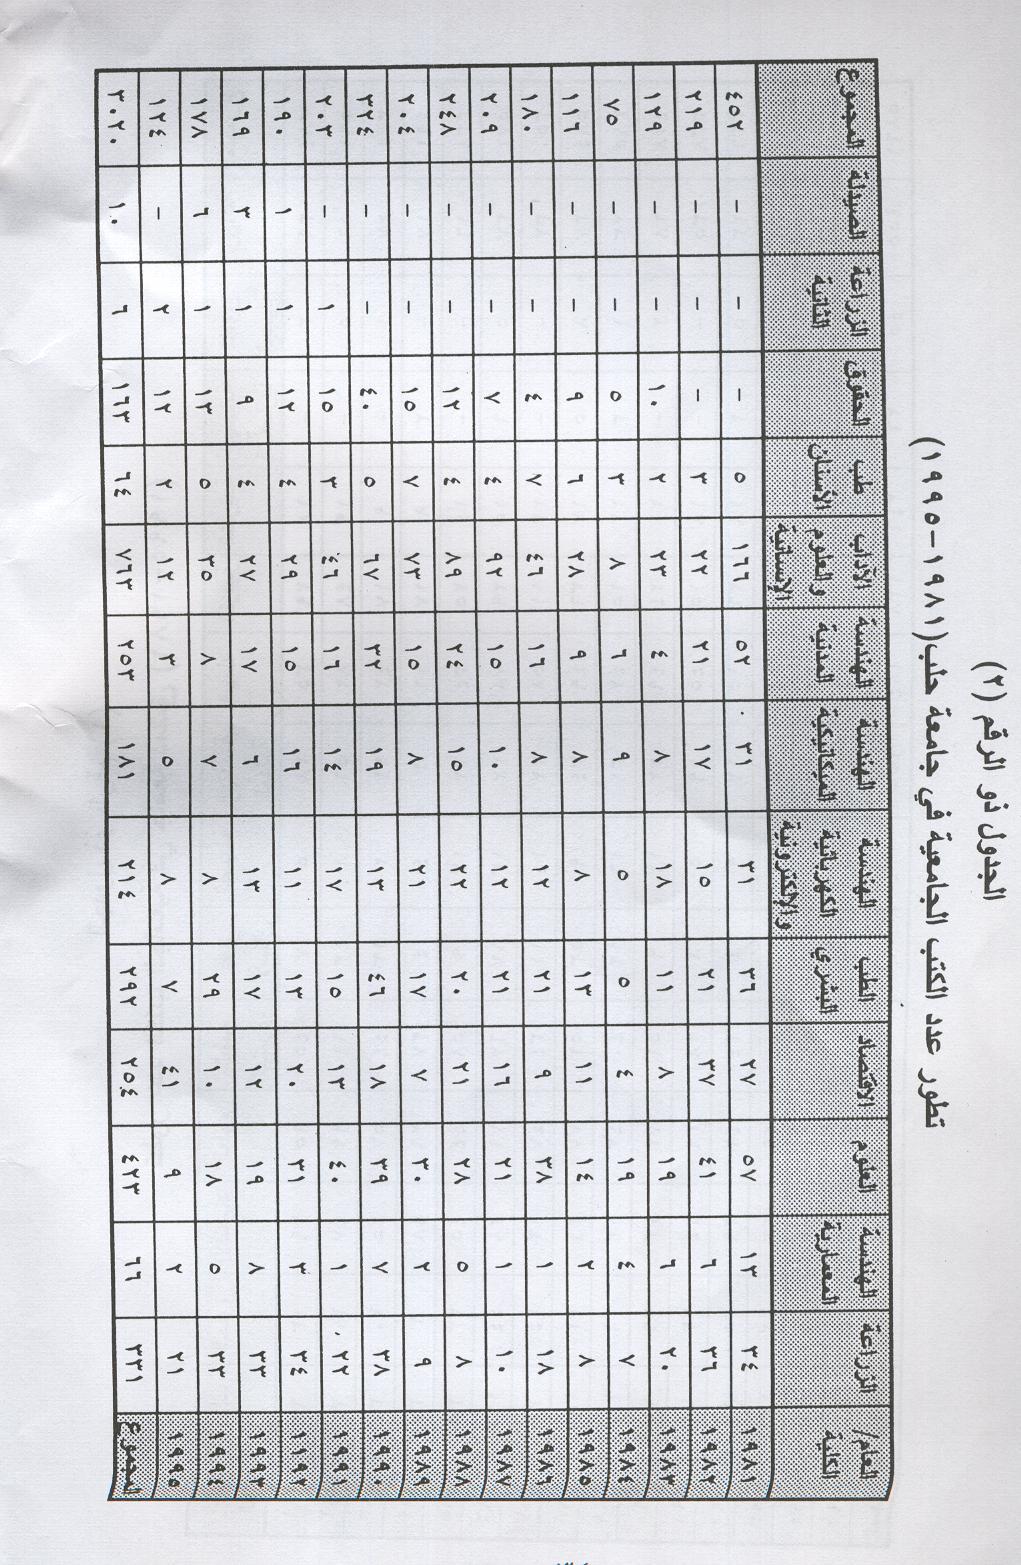 الجدول ذو الرقم (٢)
تطور عدد الكتب الجامعية في جامعة حلب (١٩٨١-١٩٩٥)
العام/ الكلية الزراعة الهندسة المعمارية العلوم الاقتصاد الطب البشري الهندسة الكهربائية والالكترونية الهندسة الميكانيكية الهندسة المدنية الآداب والعلوم الإنسانية طب الأسنان الحقوق الزراعة الثانية الصيدلة المجموع
١٩٨١ ٣٤ ١٣ ٥٧ ٢٧ ٣٦ ٣١ ٣١ ٥٢ ١٦٦ ٥ - - - ٤٥٢
١٩٨٢ ٣٦ ٦ ٤١ ٣٧ ٢١ ١٥ ١٧ ٢١ ٢٢ ٣ - - - ٢١٩
١٩٨٣ ٢٠ ٦ ١٩ ٨ ١١ ١٨ ٨ ٤ ٢٣ ٢ ١٠ - - ١٢٩
١٩٨٤ ٧ ٤ ١٩ ٤ ٥ ٥ ٩ ٦ ٨ ٣ ٥ - - ٧٥
١٩٨٥ ٨ ٢ ١٤ ١١ ١٣ ٨ ٨ ٩ ٢٨ ٦ ٩ - - ١١٦
١٩٨٦ ١٨ ١ ٣٨ ٩ ٢١ ١٢ ٨ ١٦ ٤٦ ٧ ٤ - - ١٨٠
١٩٨٧ ١٠ ١ ٢١ ١٦ ٢١ ١٢ ١٠ ١٥ ٩٢ ٤ ٧ - - ٢٠٩
١٩٨٨ ٨ ٥ ٢٨ ٢١ ٢٠ ٢٢ ١٥ ٢٤ ٨٩ ٤ ١٢ - - ٢٤٨
١٩٨٩ ٩ ٢ ٣٠ ٧ ١٧ ٢١ ٨ ١٥ ٧٣ ٧ ١٥ - - ٢٠٤
١٩٩٠ ٣٨ ٧ ٣٩ ١٨ ٤٦ ١٣ ١٩ ٣٢ ٦٧ ٥ ٤٠ - - ٣٢٤
١٩٩١ ٢٢ ١ ٤٠ ١٣ ١٥ ١٧ ١٤ ١٦ ٤٦ ٣ ١٥ ١ - ٢٠٣
١١٩٢ ٣٤ ٣ ٣١ ٢٠ ١٣ ١١ ١٦ ١٥ ٢٩ ٤ ١٢ ١ ١ ١٩٠
١٩٩٣ ٣٣ ٨ ١٩ ١٢ ١٧ ١٣ ٦ ١٧ ٢٧ ٤ ٩ ١ ٣ ١٦٩
١٩٩٤ ٣٣ ٥ ١٨ ١٠ ٢٩ ٨ ٧ ٨ ٣٥ ٥ ١٣ ١ ٦ ١٧٨
١٩٩٥ ٢١ ٢ ٩ ٤١ ٧ ٨ ٥ ٣ ١٢ ٢ ١٢ ٢ - ١٢٤
المجموع ٣٣١ ٦٦ ٤٢٣ ٢٥٤ ٢٩٢ ٢١٤ ١٨١ ٢٥٣ ٧٦٣ ٦٤ ١٦٣ ٦ ١٠ ٣٠٢٠